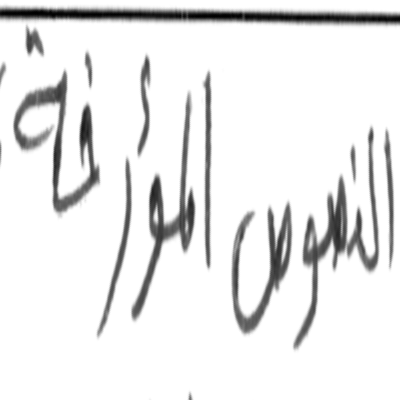 النصوص المؤرخة